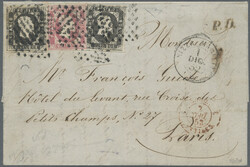 P.D.
Monsieur
DIC.
Mr. François
Hôtel du Levant, rue Croix des
petits Champs, N° 27
Paris